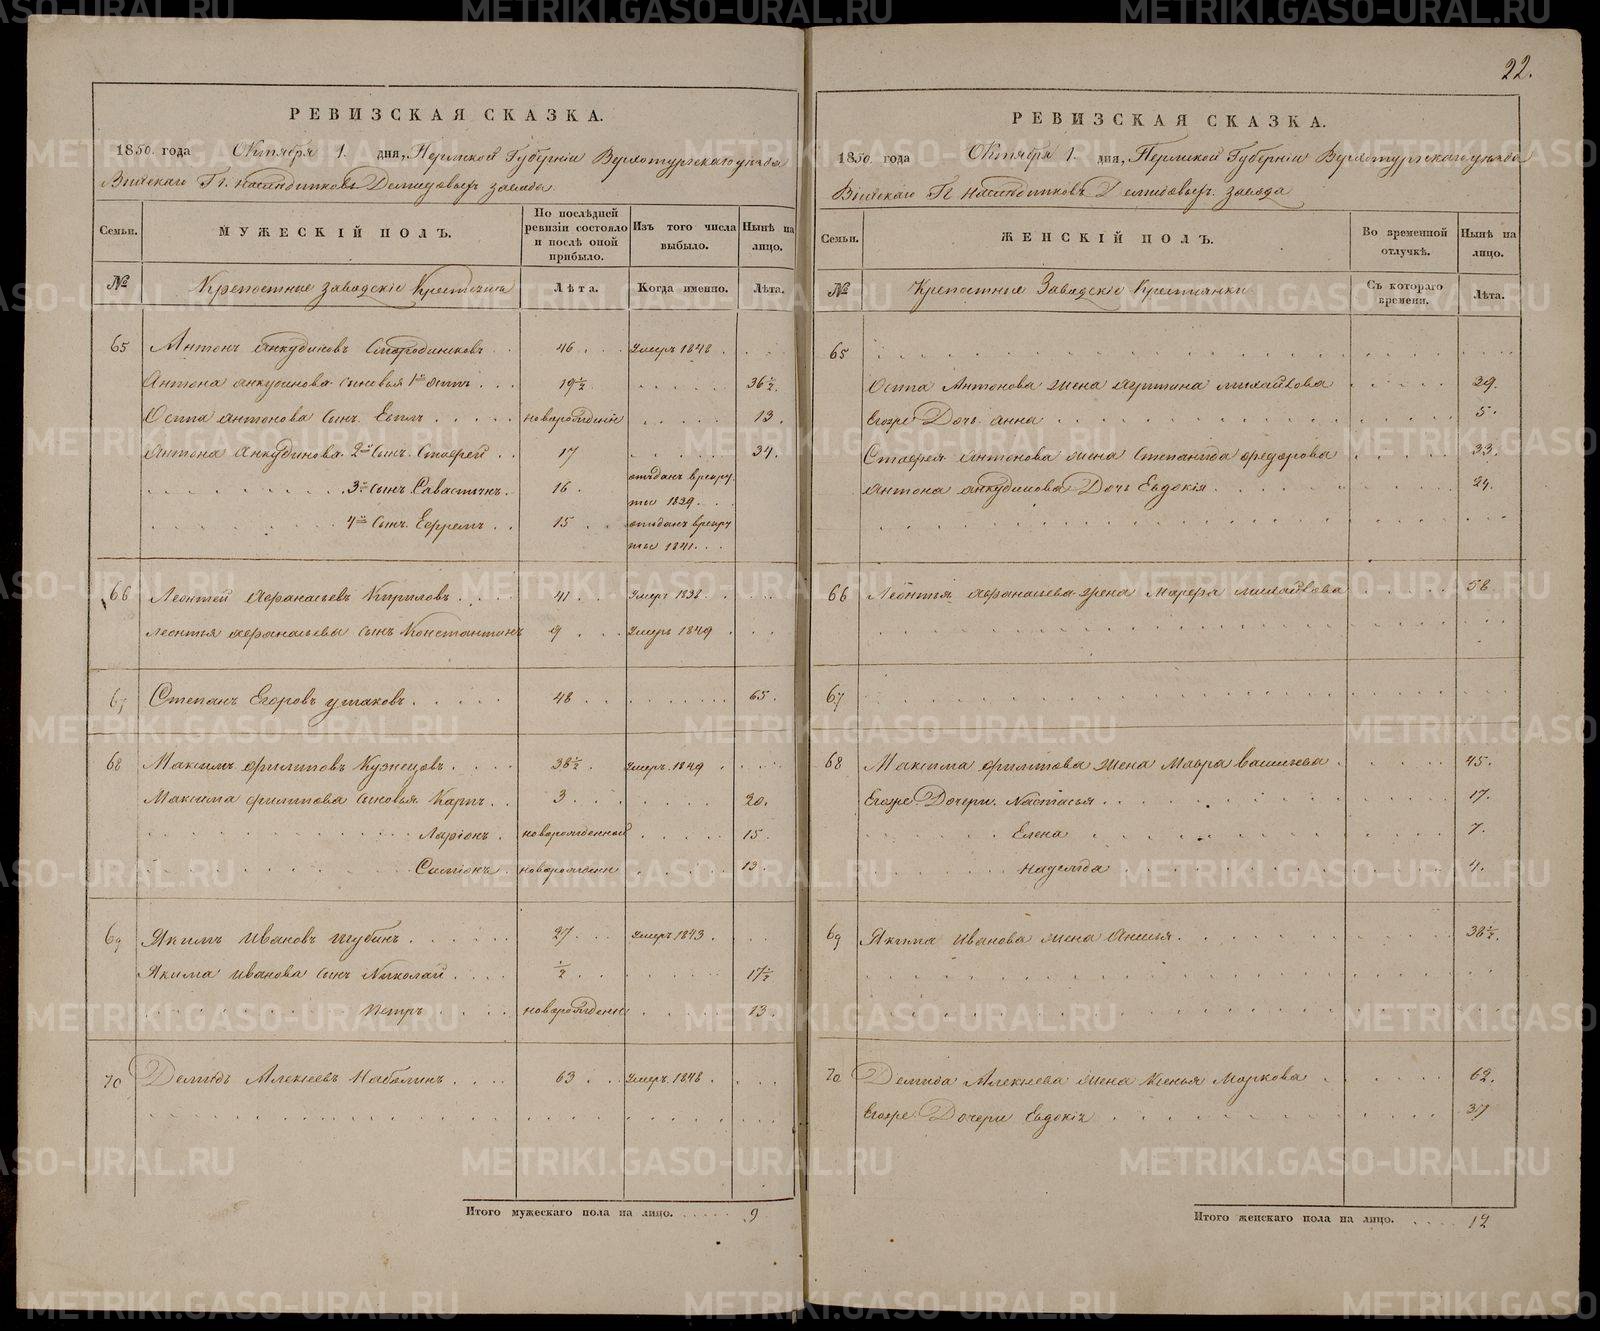 22.
РЕВИЗСКАЯ СКАЗКА.
1850. года Октября 1. дня, Пермской Губерніи Верхотурскаго уѣзда
Г. наслѣдниковъ Демидовыхъ завода
Семьи. МУЖЕСКІЙ ПОЛЪ. По послѣдней ревизіи состояло и послѣ оной прибыло. Изъ того числа выбыло. Нынѣ на лицо.
№ Крепостные заводскіе Крестьяна Лѣта. Когда именно. Лѣта.
65 Антонъ Анкудиновъ Смородниковъ 46 умеръ 1848
Антона Анкудинова сыновья 1й Осипъ 19½ 36½
Осипа Антонова сынъ новорожденн 13.
Антона Анкудинова 2й сынъ Стафей 17 34.
3й сынъ Савастьянъ 16 отданъ врекру
ты 1839
4й сынъ Ефремъ 15 отданъ врекру
ты 1841
66 Леонтей Афанасьевъ Кириловъ 41 умеръ 1838
Леонтья Афанасьевы сынъ Константинъ 9 умеръ 1849
67 Степанъ Егоровъ Ушаковъ 48 65.
68 Максимъ Филиповъ Кузнецовъ 38½ умеръ 1849
Максима Филипова сыновья Карпъ 3 20.
Ларіонъ новорожденной 15
Симіонъ новорожденн 13
69 Якимъ Ивановъ Шубинъ 27 умеръ 1843
Якима Иванова сынъ Николай ½ 17½
Петръ новорожденн 13.
70 Демидъ Алексеевъ Наболинъ 63 умеръ 1848
Итого мужескаго пола на лицо. 9
РЕВИЗСКАЯ СКАЗКА.
1850. года Октября 1. дня, Пермской Губерніи Верхотурскаго уѣзда
Г наслѣдниковъ Демидовыхъ завода
Семьи. ЖЕНСКІЙ ПОЛЪ. Во временной отлучкѣ. Нынѣ на лицо.
№ Крепостные Заводскіе Крестьянки Съ котораго времени. Лѣта.
65
Осипа Антонова жена Аустина Михайлова 29.
Егоже Дочь Анна 5.
Стафея Антонова жена Степанида Федорова 33.
Антона Анкудинова Дочь Евдокія 24.
66 Леонтья Афанасьева жена Марфа Михайлова 58
67
68 Максима Филипова жена Мавра Васильева 45.
Егоже Дочери Настасья 17.
Елена 7.
Надежда 4.
69 Якима Иванова жена Анисья 38½.
70 Демида Алексеева жена Ксенья Маркова 62.
Егоже Дочери Евдокія 37
Итого женскаго пола на лицо. 12
METRIKI.GASO-URAL.RU